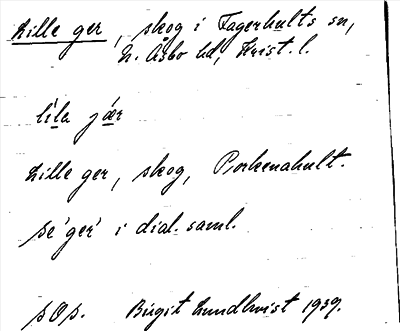 Lille ger, skog i Fagerhults sn,
N. Åsbo hd, Krist. l.
líla jǽr
Lille ger, skog, Porkenahult.
se 'ger' i dial. saml.
pOp. Birgit Lundkvist 1939.